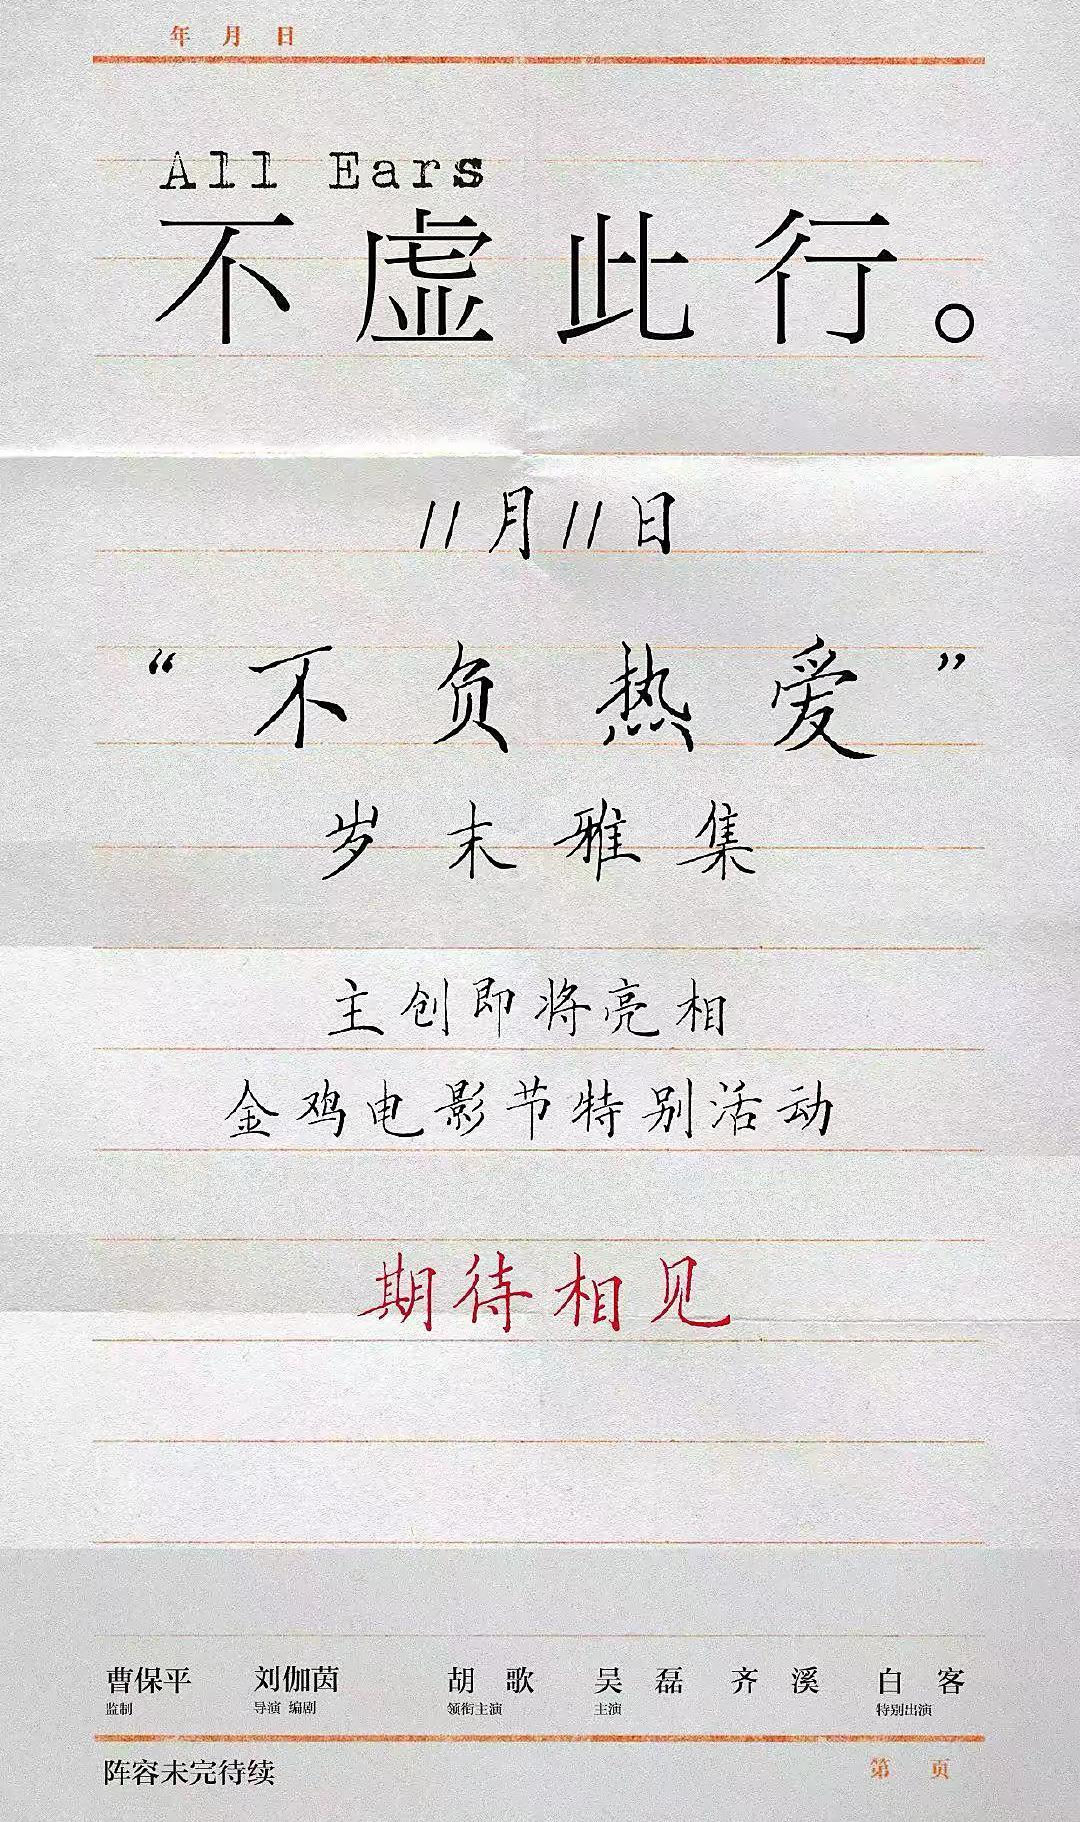 年 月 日
All Ears
不虚此行。
11月11日
“不负热爱”
岁末雅集
主创即将亮相
金鸡电影节特别活动
期待相见
曹保平 刘伽茵 胡歌 吴磊 齐溪 白客
监制 导演 编剧 领衔主演 主演 特别出演
阵容未完待续 第 页